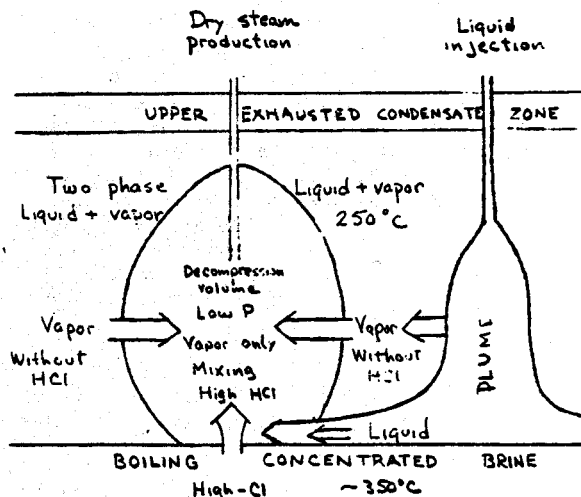 Dry steam
production
Liquid
injection
UPPER EXHAUSTED CONDENSATE ZONE
Two phase
Liquid + vapor
Liquid + vapor
250°C
Decompression
volume
Low P
Vapor only
Mixing
High HCl
Vapor
Without
HCl
Vapor
Without
HCl
PLUME
Liquid
BOILING CONCENTRATED BRINE
High-Cl ~350°C